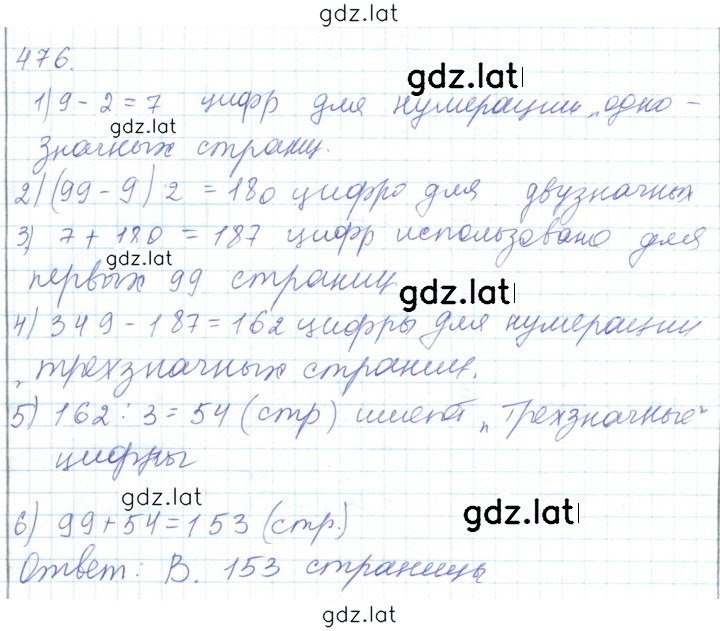 gdz.lat
476.
gdz.lat
1) 9 - 2 = 7 цифр для нумерации „одно-
gdz.lat
значных страниц.
2) (99 - 9) 2 = 180 цифр для двузначных
3) 7 + 180 = 187 цифр использовано для
gdz.lat
первых 99 страниц
gdz.lat
4) 349 - 187 = 162 цифры для нумерации
„трехзначных страниц.
5) 162 : 3 = 54 (стр) имеют „Трехзначные"
цифры
gdz.lat
gdz.lat
6) 99 + 54 = 153 (стр.)
Ответ: В. 153 страницы
gdz.lat